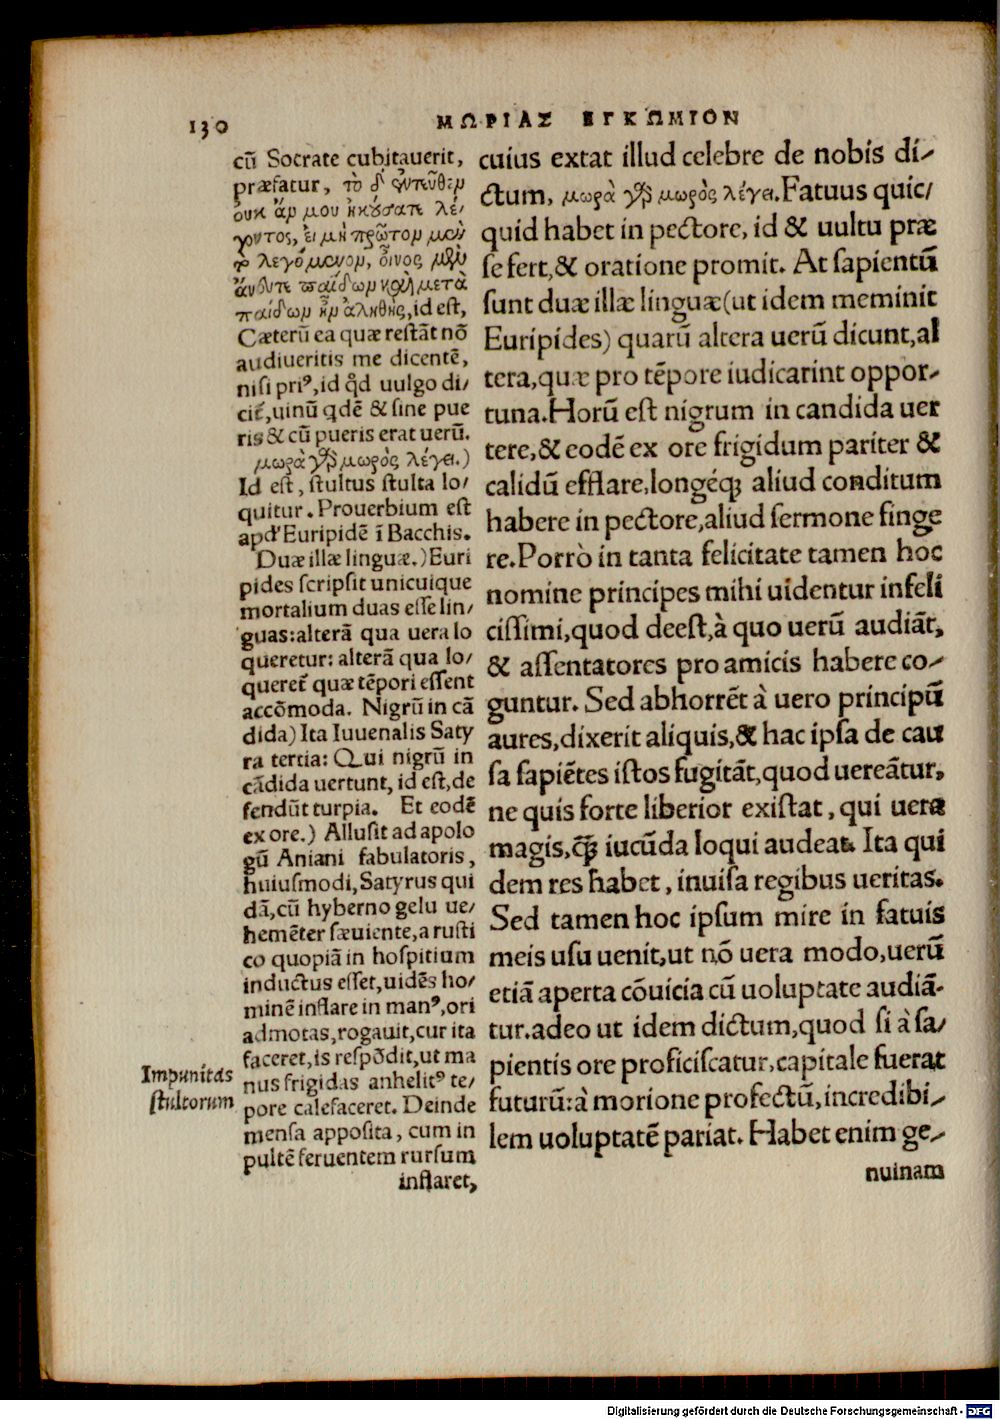 130
ΜΩΡΙΑΣ ΕΓΚΩΜΙΟΝ
cũ Socrate cubitauerit,
præfatur, τὸ δ' ἐντεῦθεν
οὐκ ἄν μου ἠκούσατε λέ/
γοντος, εἰ μὴ πρῶτον μὲν
τὸ λεγόμενον, οἶνος μὲν
ἄνευτε παίδων καὶ μετὰ
παίδων ἦν ἀληθὴς, id est,
Cæterũ ea quæ restãt nõ
audiueritis me dicentẽ,
nisi priꝰ, id qđ uulgo di/
cit̃, uinũ qdẽ & sine pue
ris & cũ pueris erat uerũ.
μωρὰ γὰρ μωρὸς λέγει.)
Id est, stultus stulta lo/
quitur. Prouerbium est
apd' Euripidẽ ĩ Bacchis.
Duæ illæ linguæ.) Euri
pides scripsit unicuique
mortalium duas esse lin/
guas: alterã qua uera lo
queretur: alterã qua lo/
queret̃ quæ tẽpori essent
accõmoda. Nigrũ in cã
dida) Ita Iuuenalis Saty
ra tertia: Qui nigrũ in
cãdida uertunt, id est, de
fendũt turpia. Et eodẽ
ex ore.) Allusit ad apolo
gũ Aniani fabulatoris,
huiusmodi, Satyrus qui
dã, cũ hyberno gelu ue/
hemẽter sæuiente, a rusti
co quopiã in hospitium
inductus esset, uidẽs ho/
minẽ inflare in manꝰ, ori
admotas, rogauit, cur ita
faceret, is respõdit, ut ma
nus frigidas anhelitꝰ te/
pore calefaceret. Deinde
mensa apposita, cum in
pultẽ feruentem rursum
inflaret,
Impunitas
stultorum
cuius extat illud celebre de nobis di/
ctum, μωρὰ γὰρ μωρὸς λέγει. Fatuus quic/
quid habet in pectore, id & uultu præ
se fert, & oratione promit. At sapientũ
sunt duæ illæ linguæ (ut idem meminit
Euripides) quarũ altera uerũ dicunt, al
tera, quæ pro tẽpore iudicarint oppor/
tuna. Horũ est nigrum in candida uer
tere, & eodẽ ex ore frigidum pariter &
calidũ efflare, longéq; aliud conditum
habere in pectore, aliud sermone finge
re. Porrò in tanta felicitate tamen hoc
nomine principes mihi uidentur infeli
cissimi, quod deest, à quo uerũ audiãt,
& assentatores pro amicis habere co/
guntur. Sed abhorrẽt à uero principũ
aures, dixerit aliquis, & hac ipsa de cau
sa sapiẽtes istos fugitãt, quod uereãtur,
ne quis forte liberior existat, qui uera
magis, ꝗ̃ iucũda loqui audeat. Ita qui
dem res habet, inuisa regibus ueritas.
Sed tamen hoc ipsum mire in fatuis
meis usu uenit, ut nõ uera modo, uerũ
etiã aperta cõuicia cũ uoluptate audiã-
tur. adeo ut idem dictum, quod si à sa/
pientis ore proficiscatur, capitale fuerat
futurũ: à morione profectũ, incredibi/
lem uoluptatẽ pariat. Habet enim ge/
nuinam
Digitalisierung gefördert durch die Deutsche Forschungsgemeinschaft - DFG